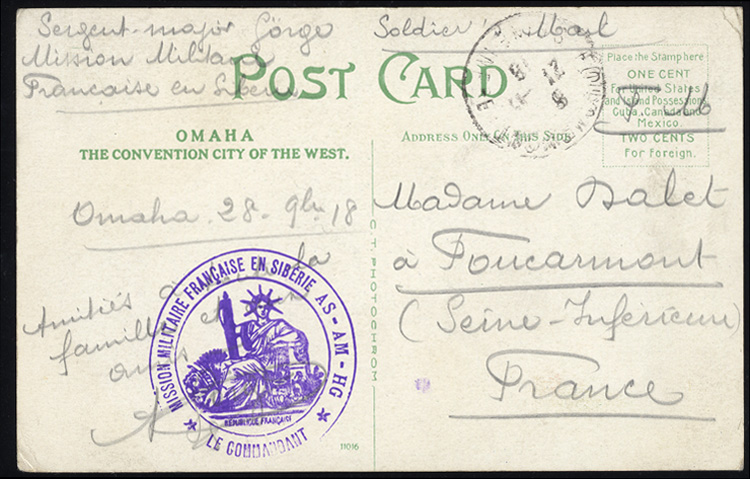 Sergent-major Görge
Mission Militaire
Francaise en Sibérie
Soldier's Mail
POST CARD
Place the Stamp here
ONE CENT
For United States
and Island Possessions
Cuba, Canada and
Mexico.
TWO CENTS
For foreign.
OMAHA
THE CONVENTION CITY OF THE WEST.
ADDRESS ONLY ON THIS SIDE
Omaha 28-9bre 18
Amitiés à
la
famille et
amis
Madame Dalet
à Foucarmont
(Seine-Inférieure)
France
C.T. PHOTOCHROM
MISSION MILITAIRE FRANÇAISE EN SIBÉRIE AS-AM-HG
RÉPUBLIQUE FRANÇAISE
★ LE COMMANDANT ★
11016